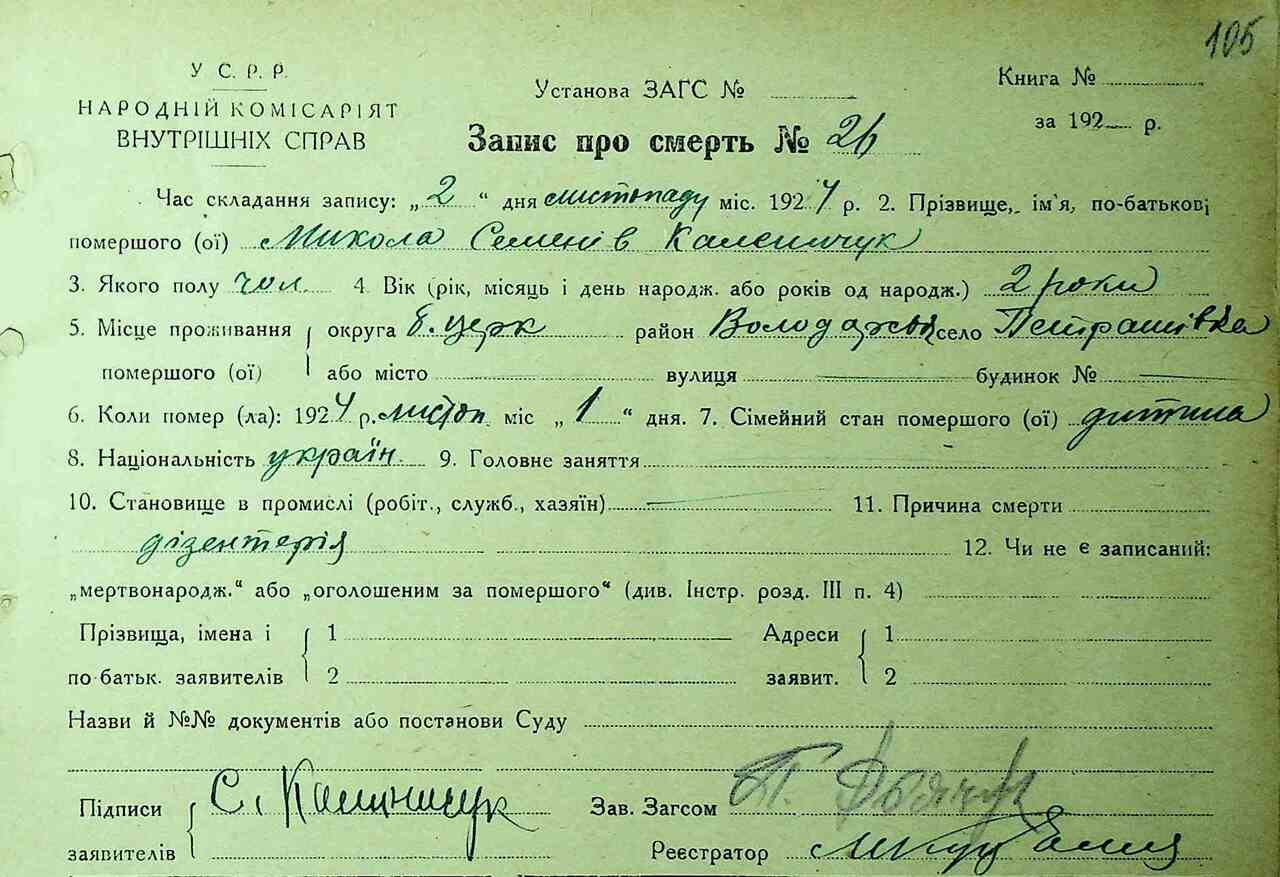 105
У С. Р. Р.
НАРОДНІЙ КОМІСАРІЯТ
ВНУТРІШНІХ СПРАВ
Установа ЗАГС №
Книга №
за 192 р.
Запис про смерть № 26
Час складання запису: „2“ дня листопаду міс. 1924 р. 2. Прізвище, ім'я, по-батькові
помершого (ої) Микола Семенів Каленичук
3. Якого полу чол. 4. Вік (рік, місяць і день народж. або років од народж.) 2 роки
5. Місце проживання округа Б. Церк район Володарськ село Петрашівка
помершого (ої) або місто вулиця будинок №
6. Коли помер (ла): 1924 р. листоп. міс „1“ дня. 7. Сімейний стан помершого (ої) дитина
8. Національність україн. 9. Головне заняття
10. Становище в промислі (робіт., служб., хазяїн) 11. Причина смерти
дізентерія 12. Чи не є записаний:
„мертвонародж.“ або „оголошеним за помершого“ (див. Інстр. розд. III п. 4)
Прізвища, імена і 1 Адреси 1
по-батьк. заявителів 2 заявит. 2
Назви й №№ документів або постанови Суду
Підписи С. Зав. Загсом П.
заявителів Реєстратор